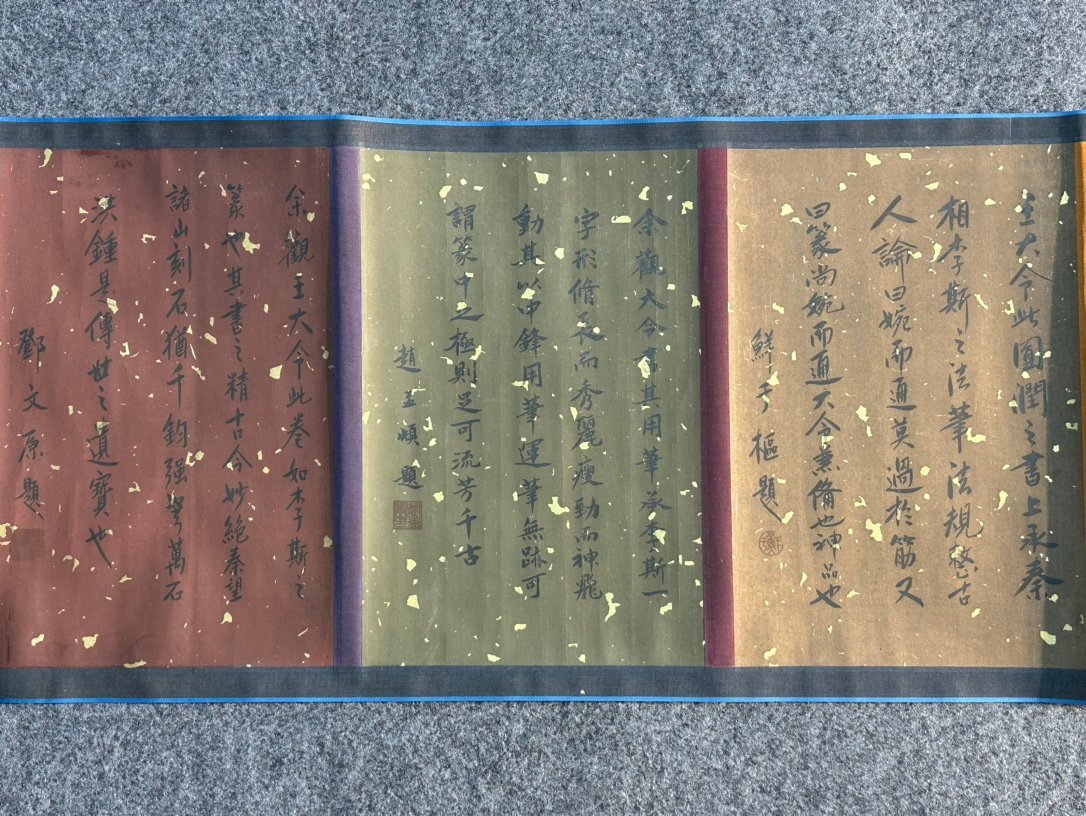 王大令此圓潤之書上承秦
相李斯之法筆法規整古
人論曰婉而通莫過於筋又
曰篆尚婉而通大令兼俻也神品也
鮮于樞題
余觀大令書其用筆承李斯一
字形脩長而秀麗瘦勁而神飛
動其以中鋒用筆運筆無跡可
謂篆中之極則足可流芳千古
趙孟頫題
余觀王大令此卷如李斯之
篆也其書之精古今妙絶秦望
諸山刻石猶千鈞强弩萬石
洪鍾是傳世之遺寳也
鄧文原題